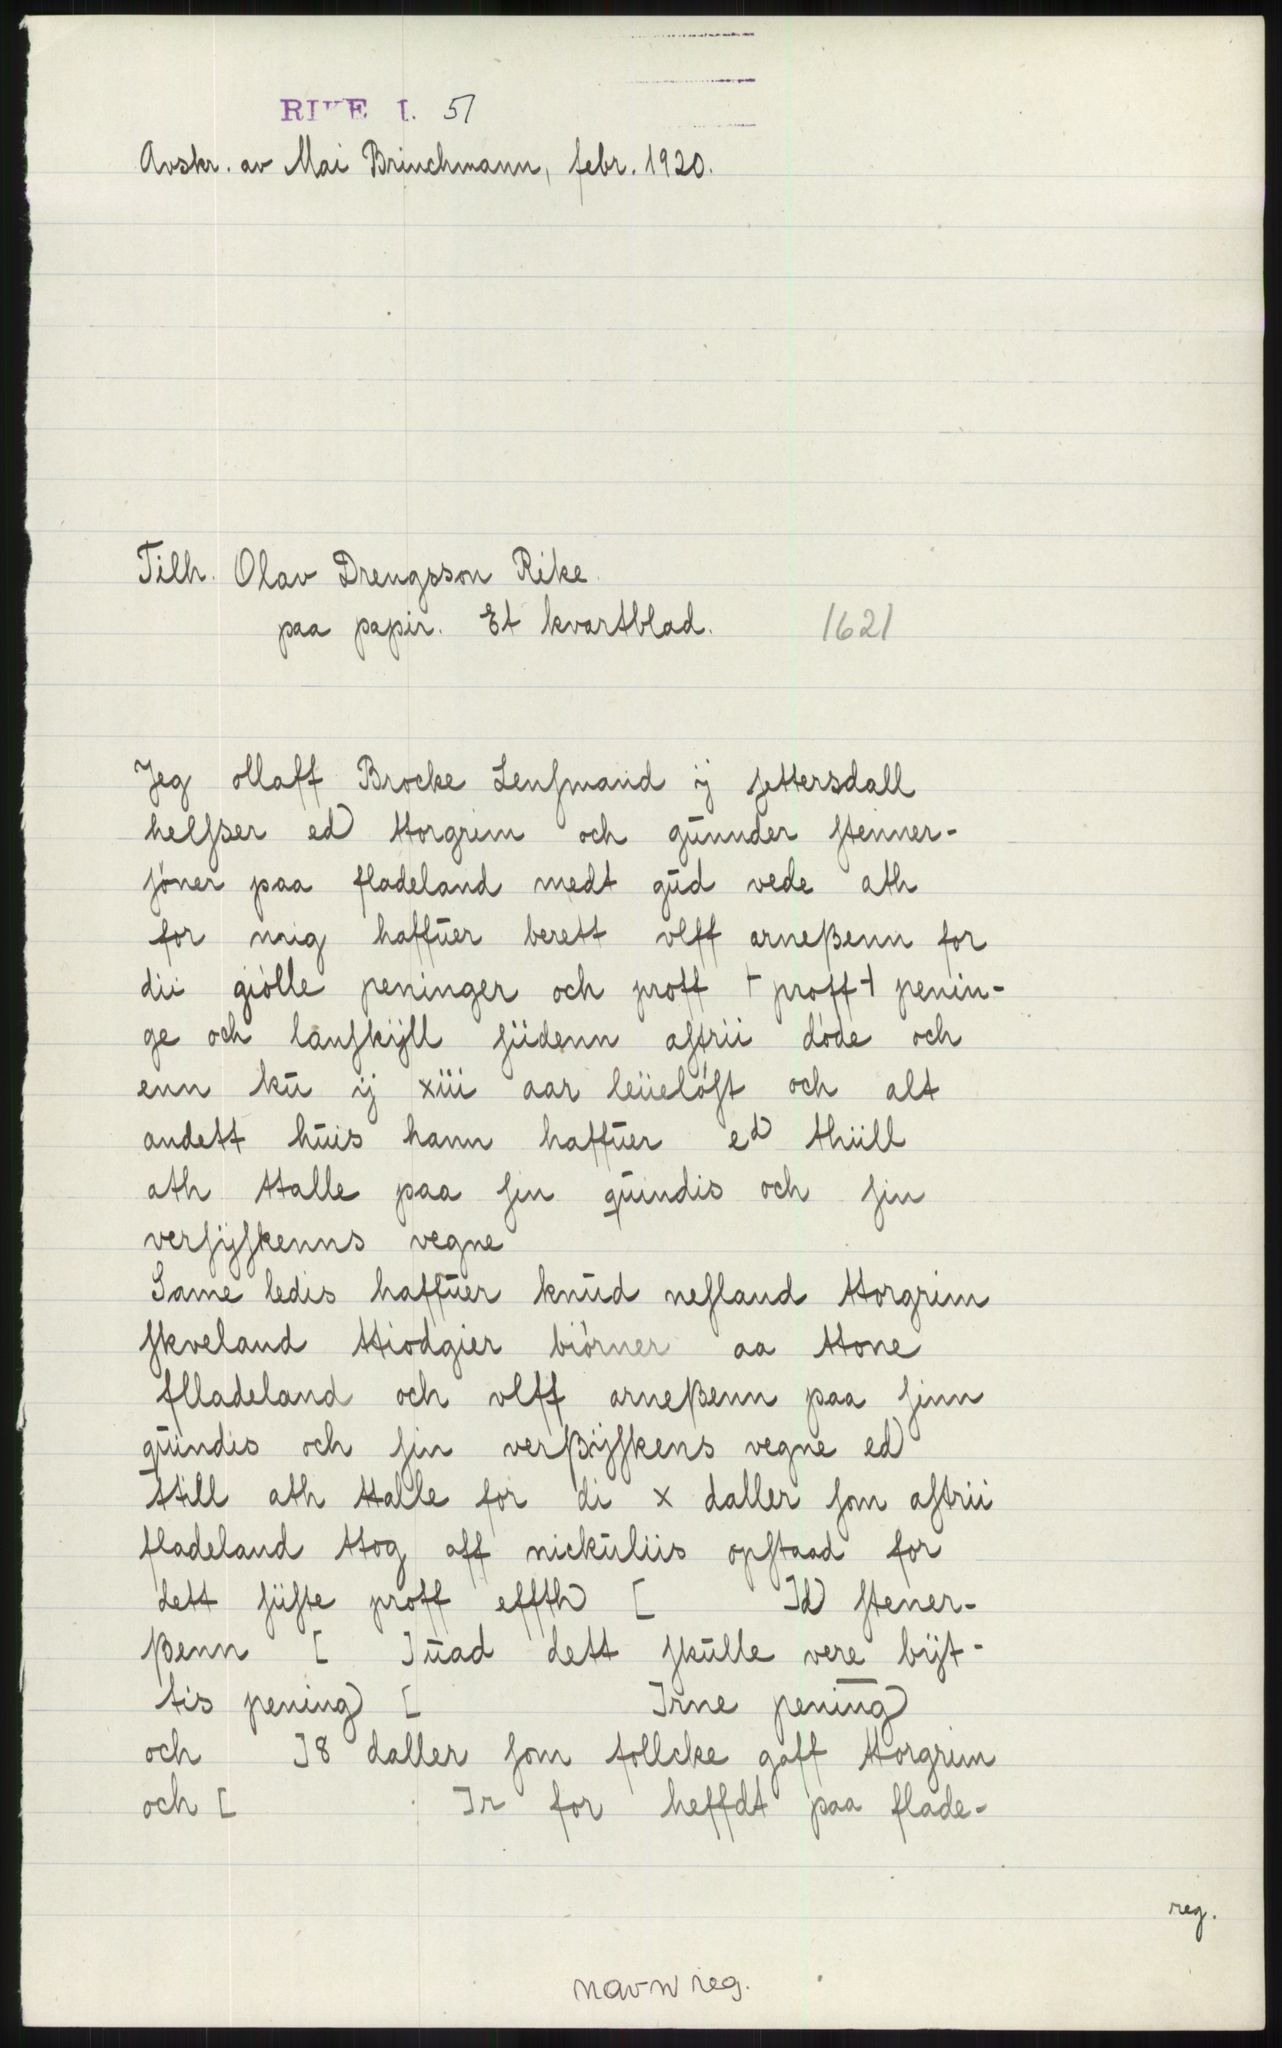 RIKE I. 51
Avskr. av Mai Brinchmann, febr. 1920.
Tilh. Olav Drengsson Rike.
paa papir. Et kvartblad. 1621
Jeg ollaff Brocke Lenſmand ÿ ſettersdall
helſser ed ttorgrim och gūnnder ſtenner-
ſóner paa fladeland medt gūd vede ath
for mig haffūer berett vlff arneßenn for
dii giólle peninger och proff ⊢ proff ⊣ penin-
ge och lanſkÿll ſiidenn aſtrii dóde och
enn kū ÿ xiii aar leiielóſt och alt
andett hūis hann haffūer ed thiill
ath ttalle paa ſin qūindis och ſin
verſÿſkenns vegne
Same ledis haffūer knūd neſland ttorgrim
ſkveland ttiodgier biórner aa ttone
flladeland och vlff arneßenn paa ſinn
qūindis och ſin verßÿſkens vegne ed
ttill ath ttalle for di x daller ſom aſtrii
fladeland ttog aff nickūliis opſtaad for
dett ſiiſte proff effth [ ]d ſtener-
ßenn [ ]ūad dett ſkūlle vere bÿt-
tis pening [ ]rne pening
och ]8 daller ſom follcke gaff ttorgrim
och [ ]r for heffdt paa flade-
reg.
navn reg.